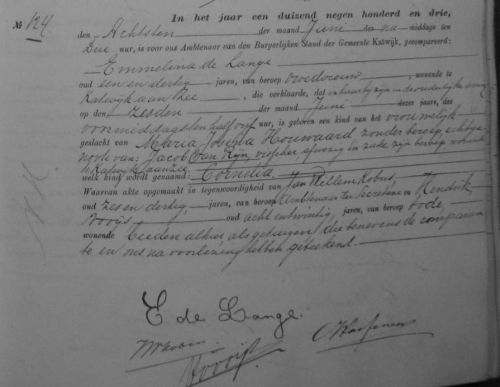 № 124
In het jaar een duizend negen honderd en drie,
den Achtsten der maand Juni des na middags ten
drie ure, is voor ons Ambtenaar van den Burgerlijken Stand der Gemeente Katwijk, gecompareerd:
Emmelina de Lange
oud een en dertig jaren, van beroep vroedvrouw, wonende te
Katwijk aan Zee, die verklaarde, dat in
op den zesden der maand Juni dezer jaars, des
voormiddags ten half vijf ure, is geboren een kind van het vrouwelijk
geslacht van Maria Houwaard zonder beroep echtge-
noote van: Jacob van Rijn, visscher afwezig in zake zijn beroep wonende
te Katwijk aan Zee
welk kind wordt genaamd: Cornelia
Waarvan akte opgemaakt in tegenwoordigheid van Jan Willem Kobus,
oud zes en dertig, jaren, van beroep Ambtenaar ter Secretarie en Hendrik
Rooijs oud acht en twintig jaren, van beroep bode,
wonende beiden alhier als getuigen die benevens de comparan-
te en ons na voorlezing hebben geteekend.
E de Lange.